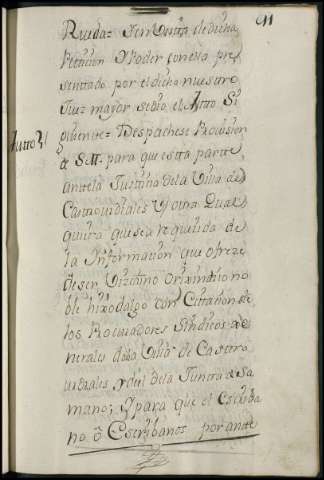 41
Rueda= Y en Vista de dicha
Peticion Y Poder con ella pre
sentado por el dicho nuestro
Juez mayor se dio el Auto Si
Autto
guiente= Despachese Provision
de S.M. para que esta parte
ante la Justicia de la Villa de
Castrourdiales Y otra Qual
quiera que sea requerida de
la Informacion que ofreze
de ser Vizcaino orixinario no
ble hixodalgo con Citacion de
los Procuradores Sindicos Ge
nerales de la Villa de Castro
urdiales y del de la Junta de Sa
mano; Y para que el Escriba
no ô Escribanos por ante